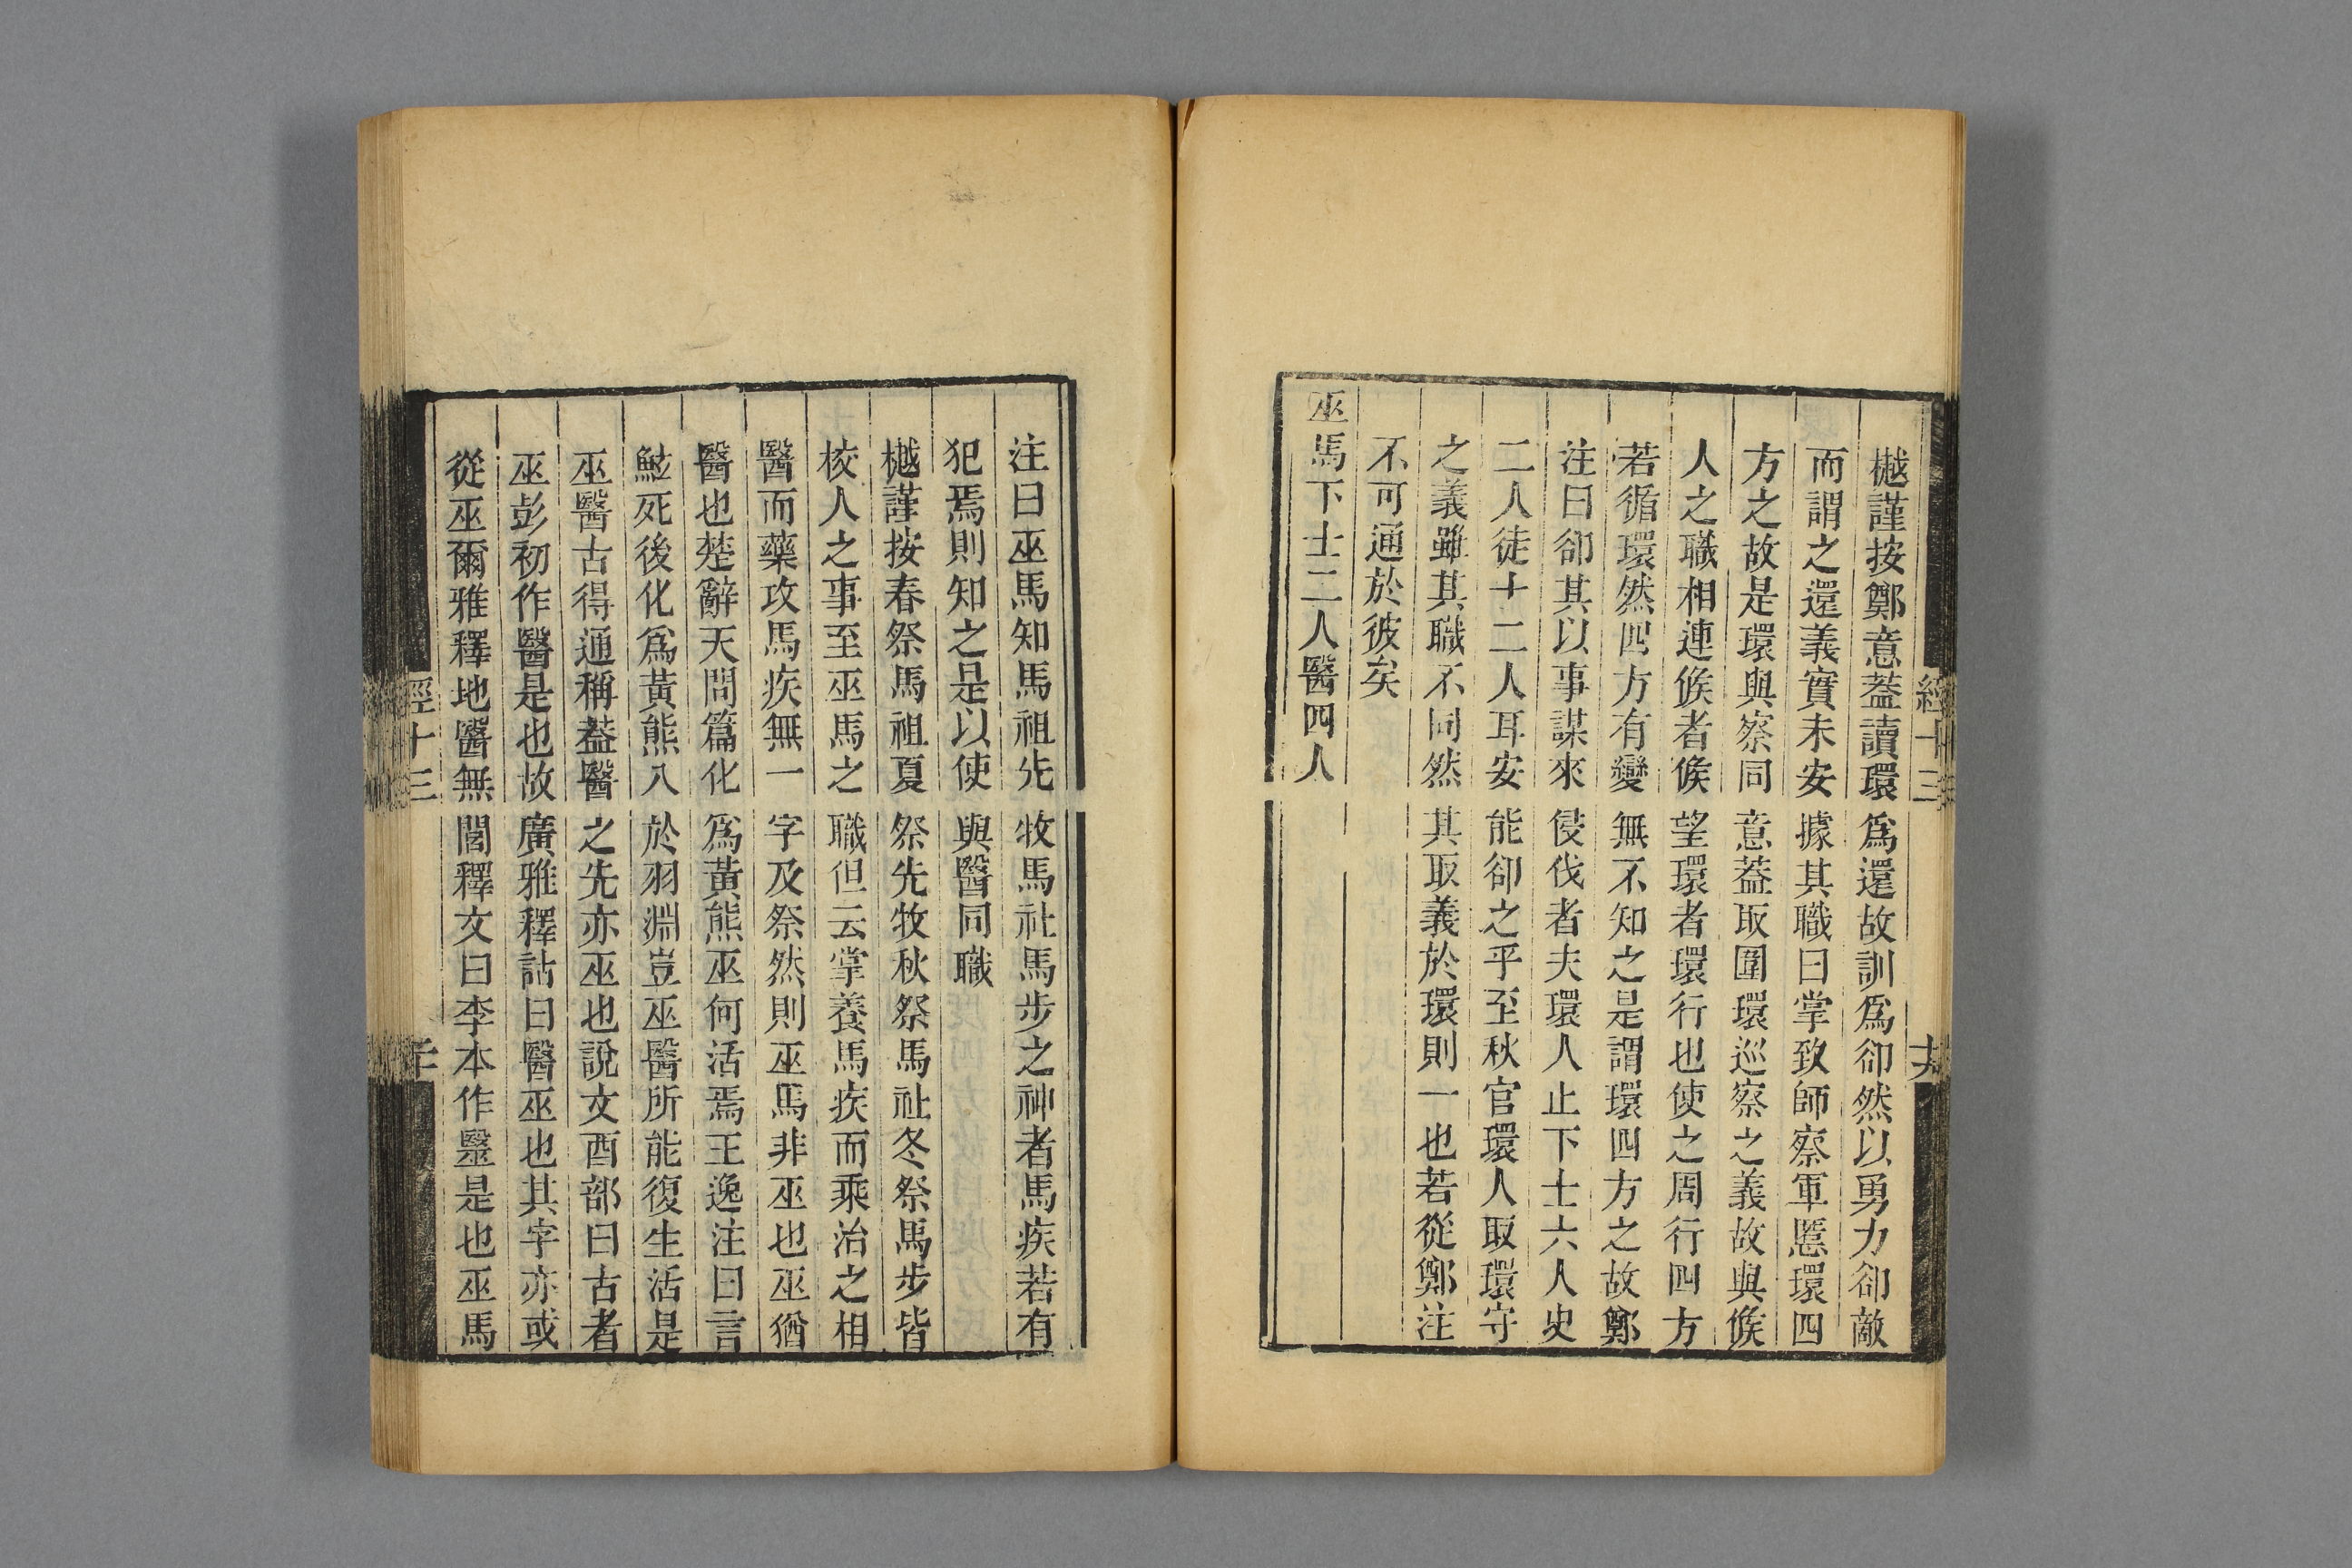 樾謹按鄭意葢讀環爲還故訓爲卻然以勇力卻敵
而謂之還義實未安據其職曰掌致師察軍慝環四
方之故是環與察同意葢取圍環巡察之義故與候
人之職相連候者候望環者環行也使之周行四方
若循環然四方有變無不知之是謂環四方之故鄭
注曰卻其以事謀來侵伐者夫環人止下士六人史
二人徒十二人耳安能卻之乎至秋官環人取環守
之義雖其職不同然其取義於環則一也若從鄭注
不可通於彼矣
巫馬下士二人醫四人
注曰巫馬知馬祖先牧馬社馬步之神者馬疾若有
犯焉則知之是以使與醫同職
樾謹按春祭馬祖夏祭先牧秋祭馬社冬祭馬步皆
校人之事至巫馬之職但云掌養馬疾而乘治之相
醫而藥攻馬疾無一字及祭然則巫馬非巫也巫猶
醫也楚辭天問篇化爲黃熊巫何活焉王逸注曰言
鮌死後化爲黃熊入於羽淵豈巫醫所能復生活是
巫醫古得通稱葢醫之先亦巫也說文酉部曰古者
巫彭初作醫是也故廣雅釋詁曰醫巫也其字亦或
從巫爾雅釋地醫無閭釋文曰李本作毉是也巫馬
經十三